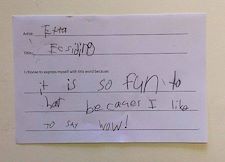 Artist: Etta
Title:
I choose to express myself with this word because:
it is so fun to
becaues I like
to say wow!